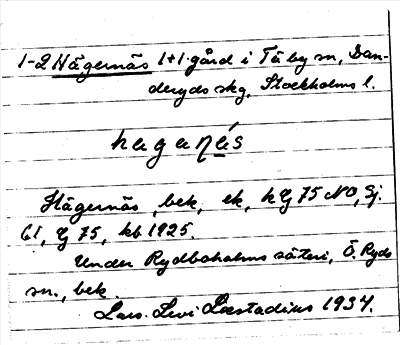 1-2 Hägernäs 1+1 gård i Täby sn, Dan-
deryds skg, Stockholms l.
hagaṇás
Hägernäs, bek, ek, hG 75 NO, Gj.
61, G 75, kb 1925.
Under Rydboholms säteri, Ö. Ryds
sn., bek.
Lars Levi Læstadius 1934.